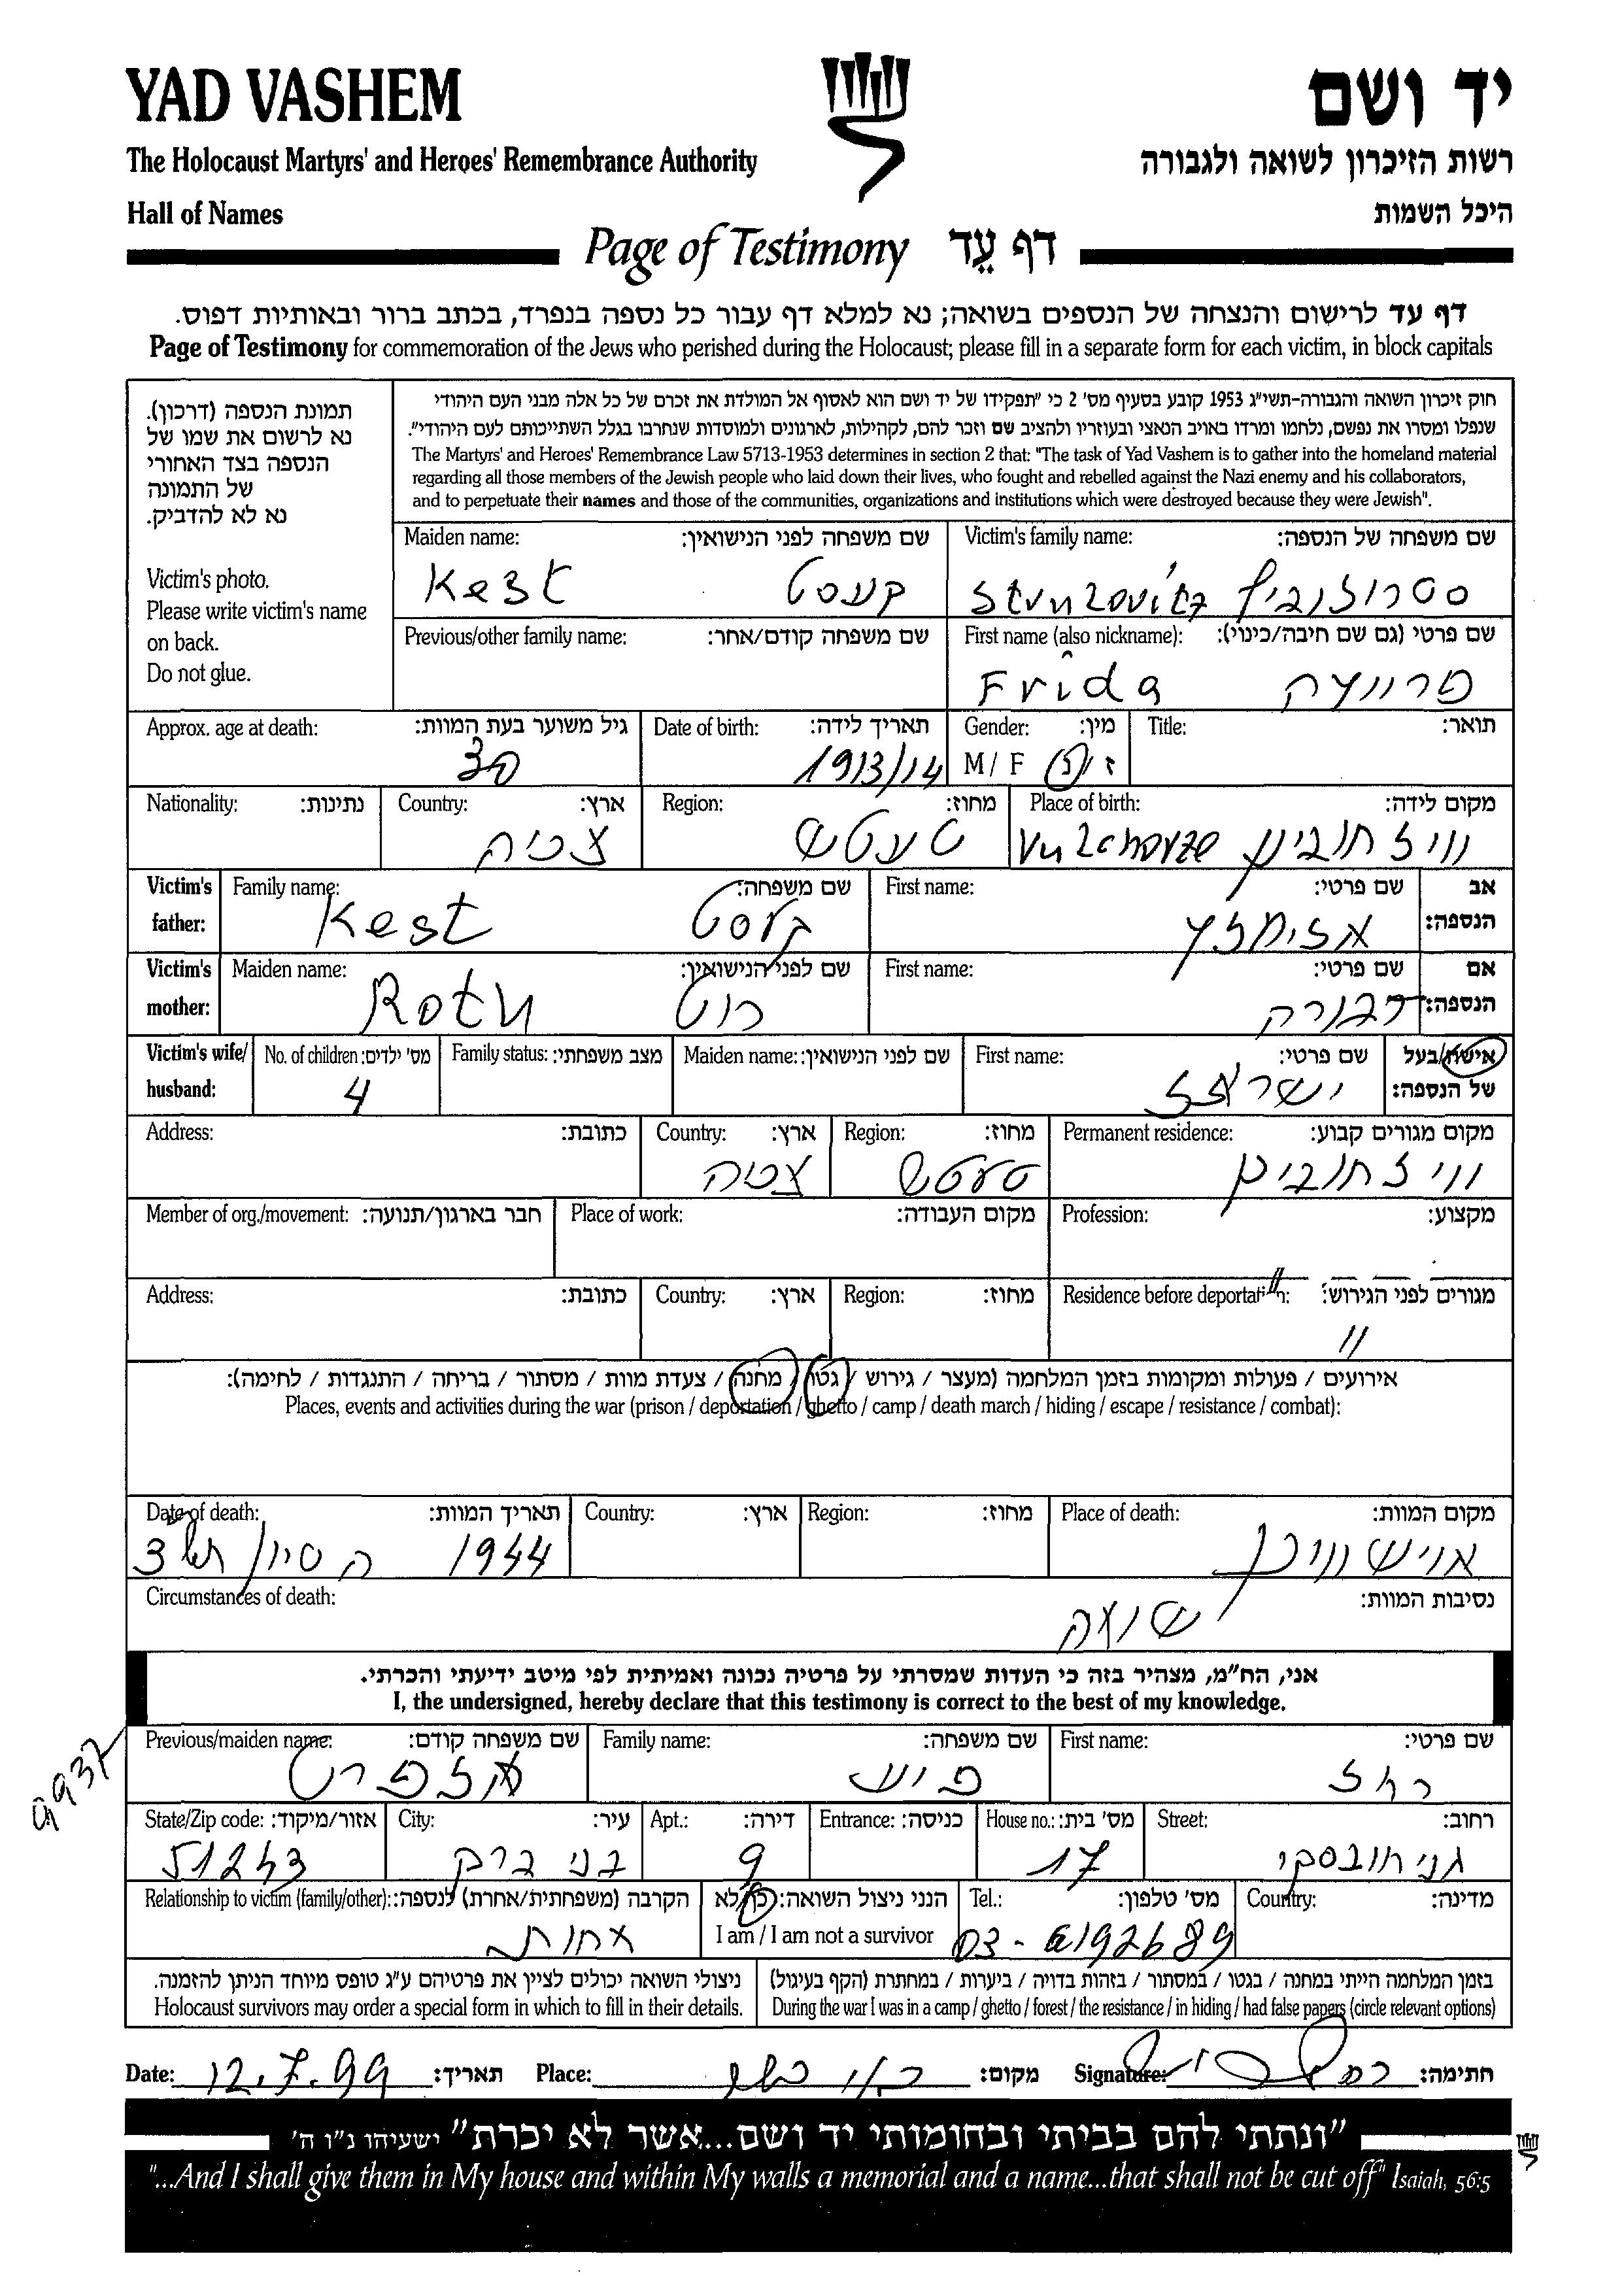 YAD VASHEM
יד ושם
The Holocaust Martyrs' and Heroes' Remembrance Authority
רשות הזיכרון לשואה ולגבורה
Hall of Names
היכל השמות
Page of Testimony דף עֵד
דף עד לרישום והנצחה של הנספים בשואה; נא למלא דף עבור כל נספה בנפרד, בכתב ברור ובאותיות דפוס.
Page of Testimony for commemoration of the Jews who perished during the Holocaust; please fill in a separate form for each victim, in block capitals
תמונת הנספה (דרכון).
נא לרשום את שמו של
הנספה בצד האחורי
של התמונה
נא לא להדביק.
Victim's photo.
Please write victim's name
on back.
Do not glue.
חוק זיכרון השואה והגבורה-תשי"ג 1953 קובע בסעיף מס' 2 כי "תפקידו של יד ושם הוא לאסוף אל המולדת את זכרם של כל אלה מבני העם היהודי
שנפלו ומסרו את נפשם, נלחמו ומרדו באויב הנאצי ובעוזריו ולהציב שם וזכר להם, לקהילות, לארגונים ולמוסדות שנחרבו בגלל השתייכותם לעם היהודי".
The Martyrs' and Heroes' Remembrance Law 5713-1953 determines in section 2 that: "The task of Yad Vashem is to gather into the homeland material
regarding all those members of the Jewish people who laid down their lives, who fought and rebelled against the Nazi enemy and his collaborators,
and to perpetuate their names and those of the communities, organizations and institutions which were destroyed because they were Jewish".
Maiden name: שם משפחה לפני הנישואין: Victim's family name: שם משפחה של הנספה:
Kest קעסט Strulovitz סטרולוביץ
Previous/other family name: שם משפחה קודם/אחר: First name (also nickname): שם פרטי (גם שם חיבה/כינוי):
Frida
Approx. age at death: גיל משוער בעת המוות: Date of birth: תאריך לידה: Gender: מין: Title: תואר:
30 1913/14 M / F ז / נ
Nationality: נתינות: Country: ארץ: Region: מחוז: Place of birth: מקום לידה:
צכיה טעטש
Victim's father: Family name: שם משפחה: First name: שם פרטי: אב הנספה:
Kest קעסט אלימלך
Victim's mother: Maiden name: שם לפני הנישואין: First name: שם פרטי: אם הנספה:
Roth רוט דבורה
Victim's wife/husband: No. of children: מס' ילדים: Family status: מצב משפחתי: Maiden name: שם לפני הנישואין: First name: שם פרטי: אישה/בעל של הנספה:
4 ישראל
Address: כתובת: Country: ארץ: Region: מחוז: Permanent residence: מקום מגורים קבוע:
צכיה טעטש
Member of org./movement: חבר בארגון/תנועה: Place of work: מקום העבודה: Profession: מקצוע:
Address: כתובת: Country: ארץ: Region: מחוז: Residence before deportation: מגורים לפני הגירוש:
"
אירועים / פעולות ומקומות בזמן המלחמה (מעצר / גירוש / גטו / מחנה / צעדת מוות / מסתור / בריחה / התנגדות / לחימה):
Places, events and activities during the war (prison / deportation / ghetto / camp / death march / hiding / escape / resistance / combat):
Date of death: תאריך המוות: Country: ארץ: Region: מחוז: Place of death: מקום המוות:
1944 ה סיון
Circumstances of death: נסיבות המוות:
שואה
אני, הח"מ, מצהיר בזה כי העדות שמסרתי על פרטיה נכונה ואמיתית לפי מיטב ידיעתי והכרתי.
I, the undersigned, hereby declare that this testimony is correct to the best of my knowledge.
9937
Previous/maiden name: שם משפחה קודם: Family name: שם משפחה: First name: שם פרטי:
רחל
State/Zip code: אזור/מיקוד: City: עיר: Apt.: דירה: Entrance: כניסה: House no.: מס' בית: Street: רחוב:
51243 בני ברק 9 17
Relationship to victim (family/other): הקרבה (משפחתית/אחרת) לנספה: הנני ניצול השואה: כן/לא Tel.: מס' טלפון: Country: מדינה:
אחות I am / I am not a survivor 03-6192689
ניצולי השואה יכולים לציין את פרטיהם ע"ג טופס מיוחד הניתן להזמנה.
Holocaust survivors may order a special form in which to fill in their details.
בזמן המלחמה הייתי במחנה / בגטו / במסתור / בזהות בדויה / ביערות / במחתרת (הקף בעיגול)
During the war I was in a camp / ghetto / forest / the resistance / in hiding / had false papers (circle relevant options)
Date: 12.7.99 תאריך: Place: מקום: Signature: חתימה:
"ונתתי להם בביתי ובחומותי יד ושם...אשר לא יכרת" ישעיהו נ"ו ה'
"...And I shall give them in My house and within My walls a memorial and a name...that shall not be cut off" Isaiah, 56:5